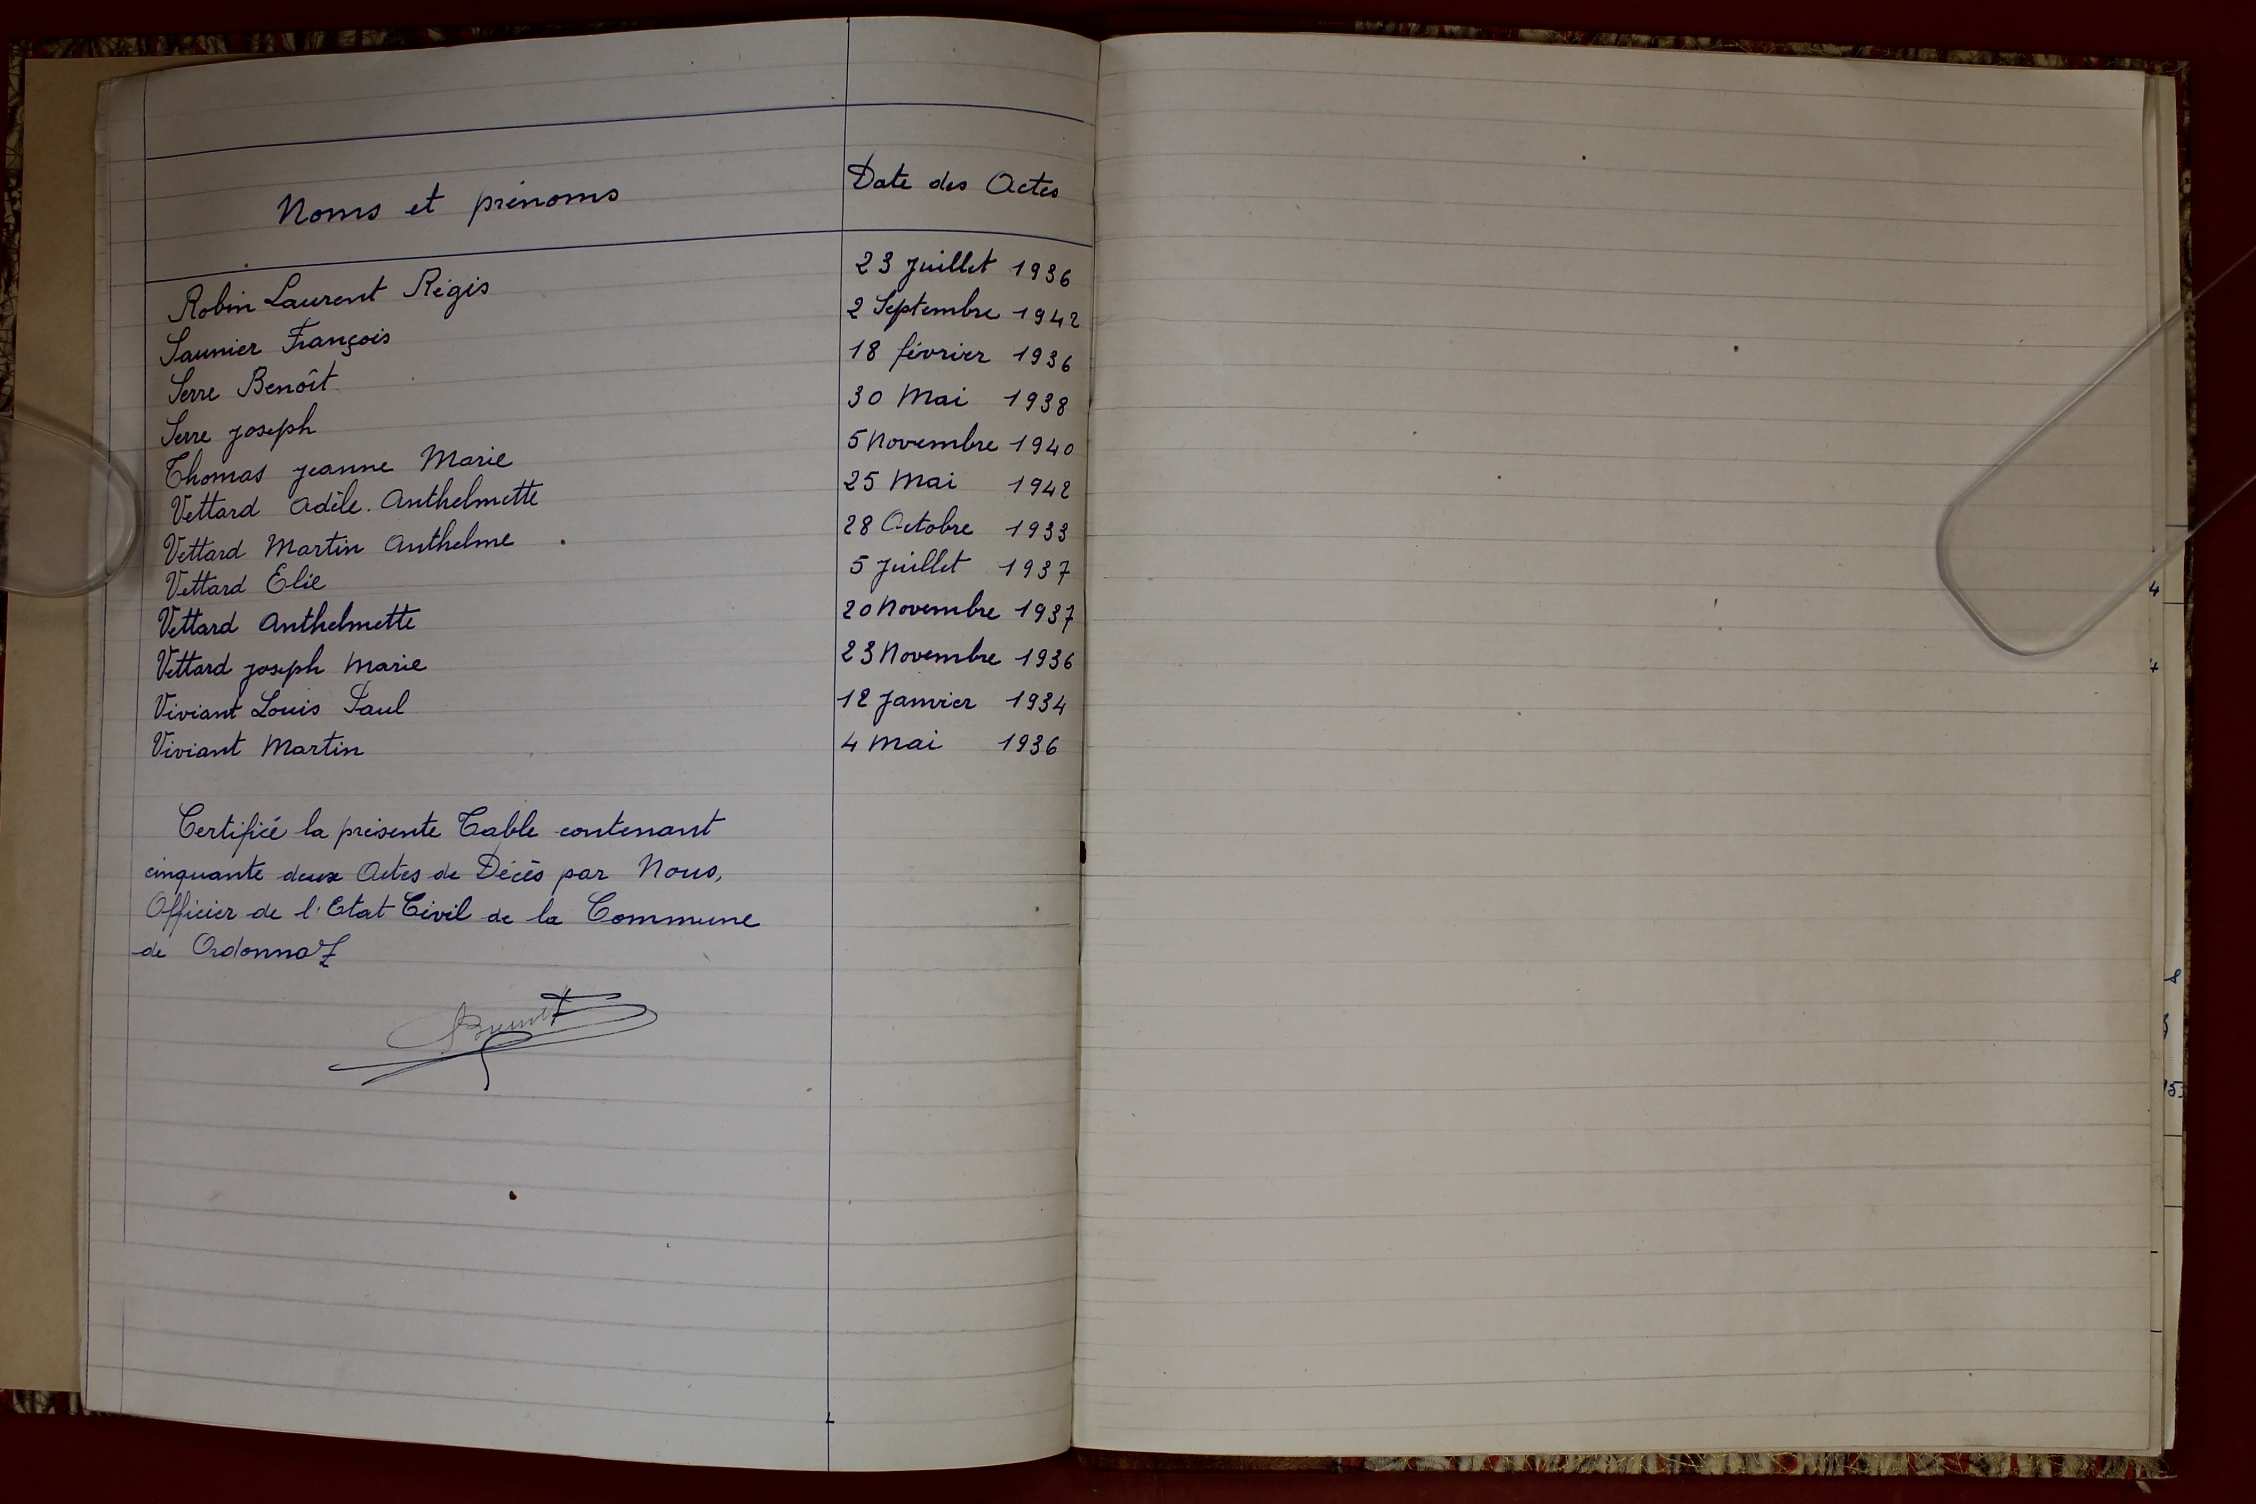 Noms et prénoms Date des Actes
Robin Laurent Régis 23 Juillet 1936
Saunier François 2 Septembre 1942
Serre Benoît 18 février 1936
Serre Joseph 30 Mai 1938
Thomas Jeanne Marie 5 Novembre 1940
Vettard Adèle. Anthelmette 25 Mai 1942
Vettard Martin Anthelme 28 Octobre 1933
Vettard Elie 5 Juillet 1937
Vettard Anthelmette 20 Novembre 1937
Vettard Joseph Marie 23 Novembre 1936
Viviant Louis Paul 12 Janvier 1934
Viviant Martin 4 Mai 1936
Certifié la présente Table contenant
cinquante deux Actes de Décès par Nous,
Officier de l'Etat Civil de la Commune
de Ordonnaz
4
4
8
5